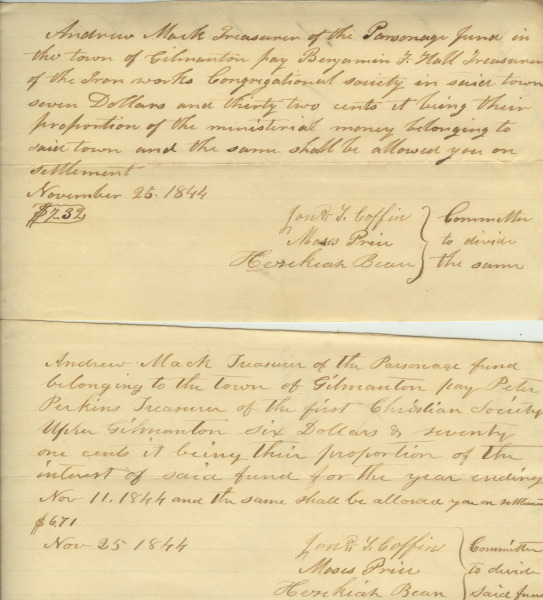 Andrew Mack Treasurer of the Parsonage fund in
the town of Gilmanton pay Benjamin F. Hall Treasurer
of the Iron works Congregational society in said town
seven Dollars and thirty two cents it being their
proportion of the ministerial money belonging to
said town and the same shall be allowed you on
settlement
November 25. 1844
$7.32
Jon. T. Coffin
Moses Price
Hezekiah Bean
Committee
to divide
the same
Andrew Mack Treasurer of the Parsonage fund
belonging to the town of Gilmanton pay Peter
Perkins Treasurer of the first Christian Society
Upper Gilmanton six Dollars & seventy
one cents it being their proportion of the
interest of said fund for the year ending
Nov 11. 1844 and the same shall be allowed you on settlemen
$6.71
Nov 25 1844
Jon. T. Coffin
Moses Price
Hezekiah Bean
Committee
to divide
said fund